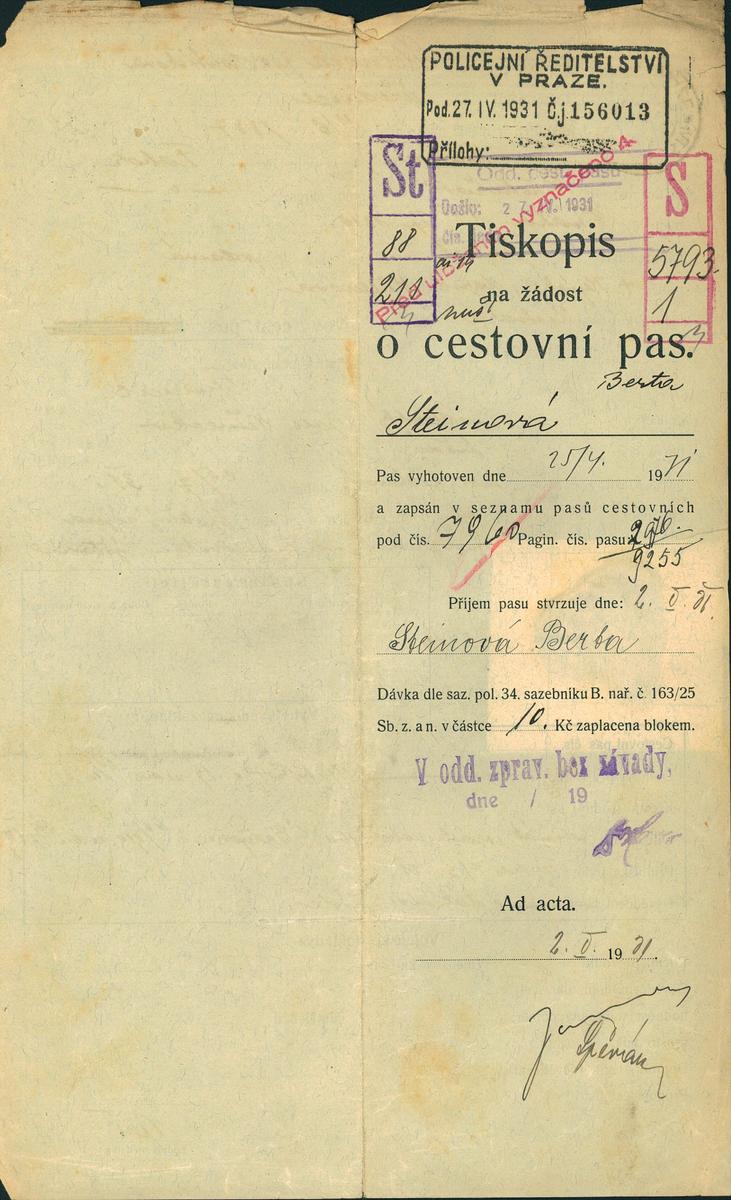 POLICEJNÍ ŘEDITELSTVÍ
V PRAZE.
Pod. 27. IV. 1931 Č.j. 156013
Přílohy:
Odd. cest. pasů
Došlo: 1931
St
88
218
S
5793
1
Před uložením vyznačeno 4
Tiskopis
na žádost
o cestovní pas.
Berta
Steinová
Pas vyhotoven dne 25/4. 1931
a zapsán v seznamu pasů cestovních
pod čís. 7960 Pagin. čís. pasu:
9255
Příjem pasu stvrzuje dne: 2. V. 31
Steinová Berta
Dávka dle saz. pol. 34. sazebníku B. nař. č. 163/25
Sb. z. a n. v částce 10. Kč zaplacena blokem.
V odd. zprav. bez závady,
dne / 19
Ad acta.
2. V. 1931.